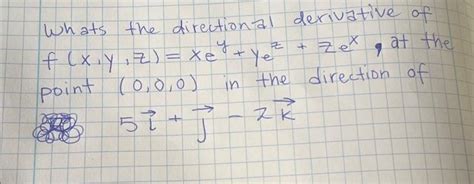 Whats the directional derivative of
f(x,y,z) = xe^y + ye^z + ze^x, at the
point (0,0,0) in the direction of
5i⃗ + j⃗ - 2k⃗